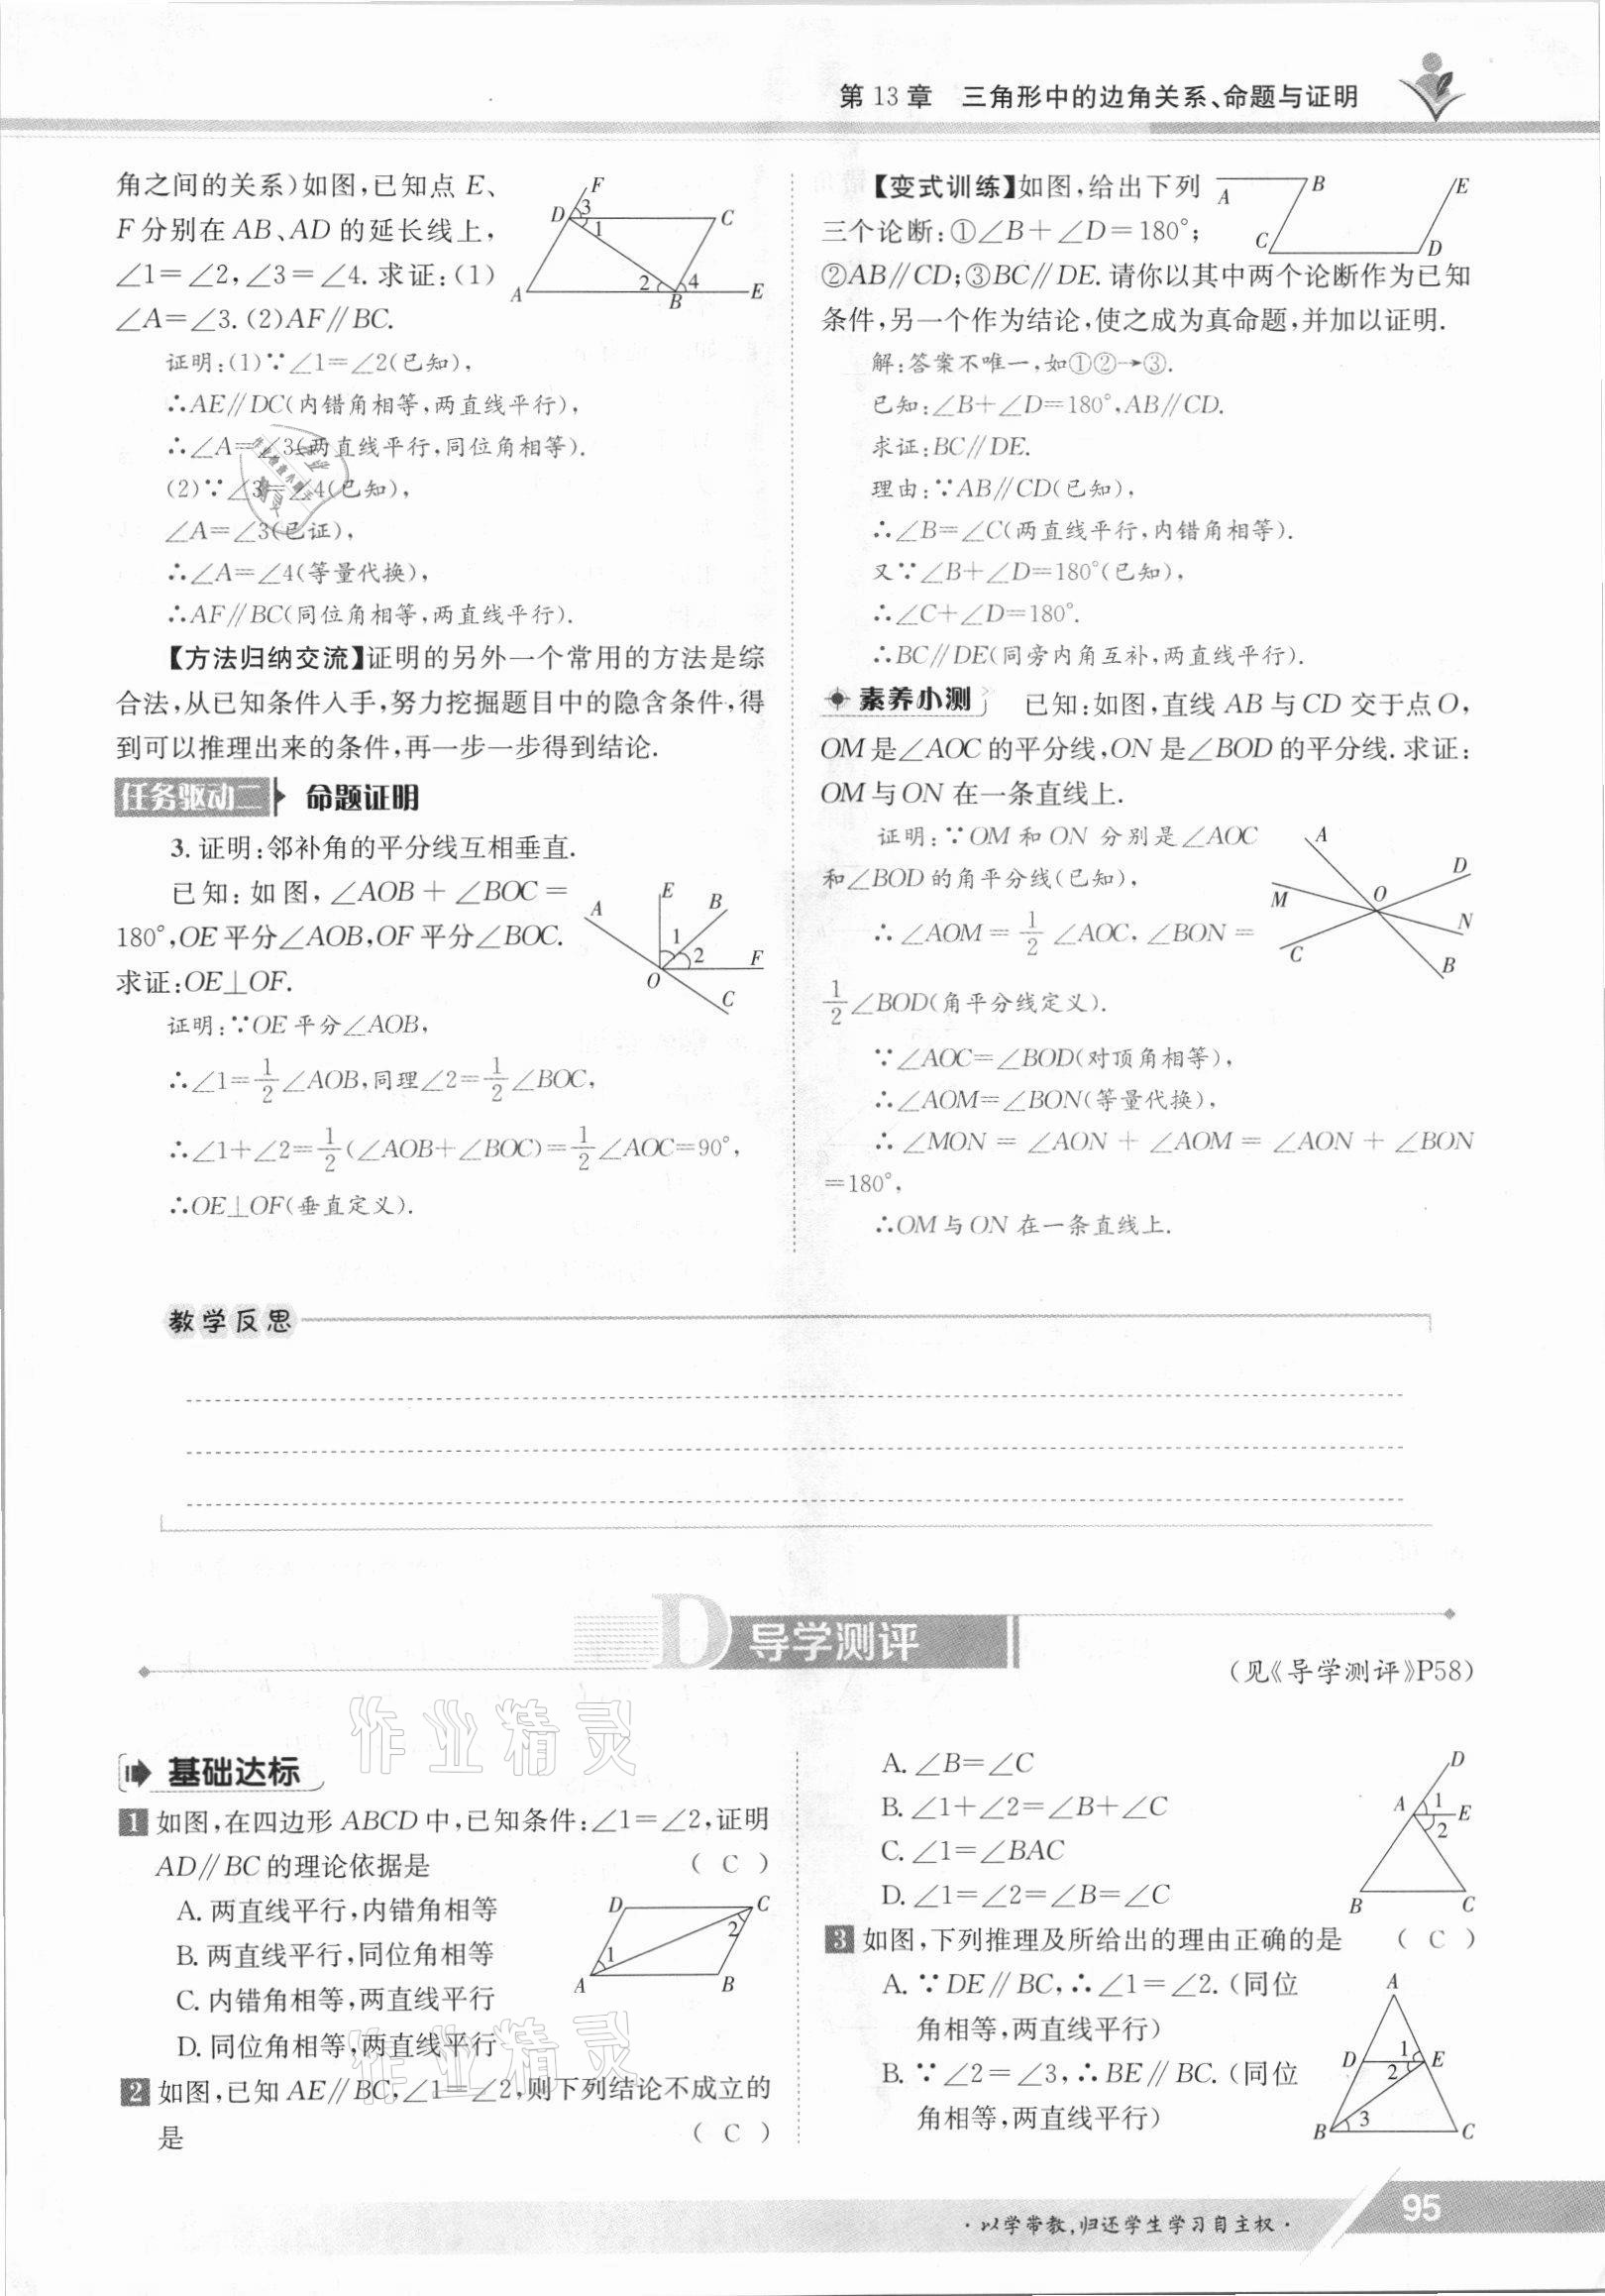 第 13 章 三角形中的边角关系、命题与证明
角之间的关系)如图,已知点 E、
F 分别在 AB、AD 的延长线上,
∠1=∠2,∠3=∠4. 求证:(1)
∠A=∠3. (2)AF∥BC.
F
D 3 1 C
A 2 4 B E
证明:(1)∵∠1=∠2(已知),
∴AE∥DC(内错角相等,两直线平行),
∴∠A=∠3(两直线平行,同位角相等).
(2)∵∠3=∠4(已知),
∠A=∠3(已证),
∴∠A=∠4(等量代换),
∴AF∥BC(同位角相等,两直线平行).
【方法归纳交流】证明的另外一个常用的方法是综
合法,从已知条件入手,努力挖掘题目中的隐含条件,得
到可以推理出来的条件,再一步一步得到结论.
任务驱动二 命题证明
3. 证明:邻补角的平分线互相垂直.
已知:如图,∠AOB+∠BOC=
180°,OE 平分∠AOB,OF 平分∠BOC.
求证:OE⊥OF.
A E B
1 2 F
O C
证明:∵OE 平分∠AOB,
∴∠1=1/2∠AOB,同理∠2=1/2∠BOC,
∴∠1+∠2=1/2(∠AOB+∠BOC)=1/2∠AOC=90°,
∴OE⊥OF(垂直定义).
【变式训练】如图,给出下列
三个论断:①∠B+∠D=180°;
②AB∥CD;③BC∥DE. 请你以其中两个论断作为已知
条件,另一个作为结论,使之成为真命题,并加以证明.
A B E
C D
解:答案不唯一,如①②→③.
已知:∠B+∠D=180°,AB∥CD.
求证:BC∥DE.
理由:∵AB∥CD(已知),
∴∠B=∠C(两直线平行,内错角相等).
又∵∠B+∠D=180°(已知),
∴∠C+∠D=180°.
∴BC∥DE(同旁内角互补,两直线平行).
素养小测 已知:如图,直线 AB 与 CD 交于点 O,
OM 是∠AOC 的平分线,ON 是∠BOD 的平分线. 求证:
OM 与 ON 在一条直线上.
证明:∵OM 和 ON 分别是∠AOC
和∠BOD 的角平分线(已知),
∴∠AOM=1/2∠AOC,∠BON=
1/2∠BOD(角平分线定义).
A D
M O N
C B
∵∠AOC=∠BOD(对顶角相等),
∴∠AOM=∠BON(等量代换),
∴∠MON=∠AON+∠AOM=∠AON+∠BON
=180°,
∴OM 与 ON 在一条直线上.
教学反思
D 导学测评
(见《导学测评》P58)
作业精灵
基础达标
1 如图,在四边形 ABCD 中,已知条件:∠1=∠2,证明
AD∥BC 的理论依据是 ( C )
A. 两直线平行,内错角相等
B. 两直线平行,同位角相等
C. 内错角相等,两直线平行
D. 同位角相等,两直线平行
D C
1 2
A B
作业精灵
2 如图,已知 AE∥BC,∠1=∠2,则下列结论不成立的
是 ( C )
A. ∠B=∠C
B. ∠1+∠2=∠B+∠C
C. ∠1=∠BAC
D. ∠1=∠2=∠B=∠C
D
A 1 E
2
B C
3 如图,下列推理及所给出的理由正确的是 ( C )
A. ∵DE∥BC,∴∠1=∠2. (同位
角相等,两直线平行)
B. ∵∠2=∠3,∴BE∥BC. (同位
角相等,两直线平行)
A
D 1 E
2
B 3 C
·以学带教,归还学生学习自主权·
95